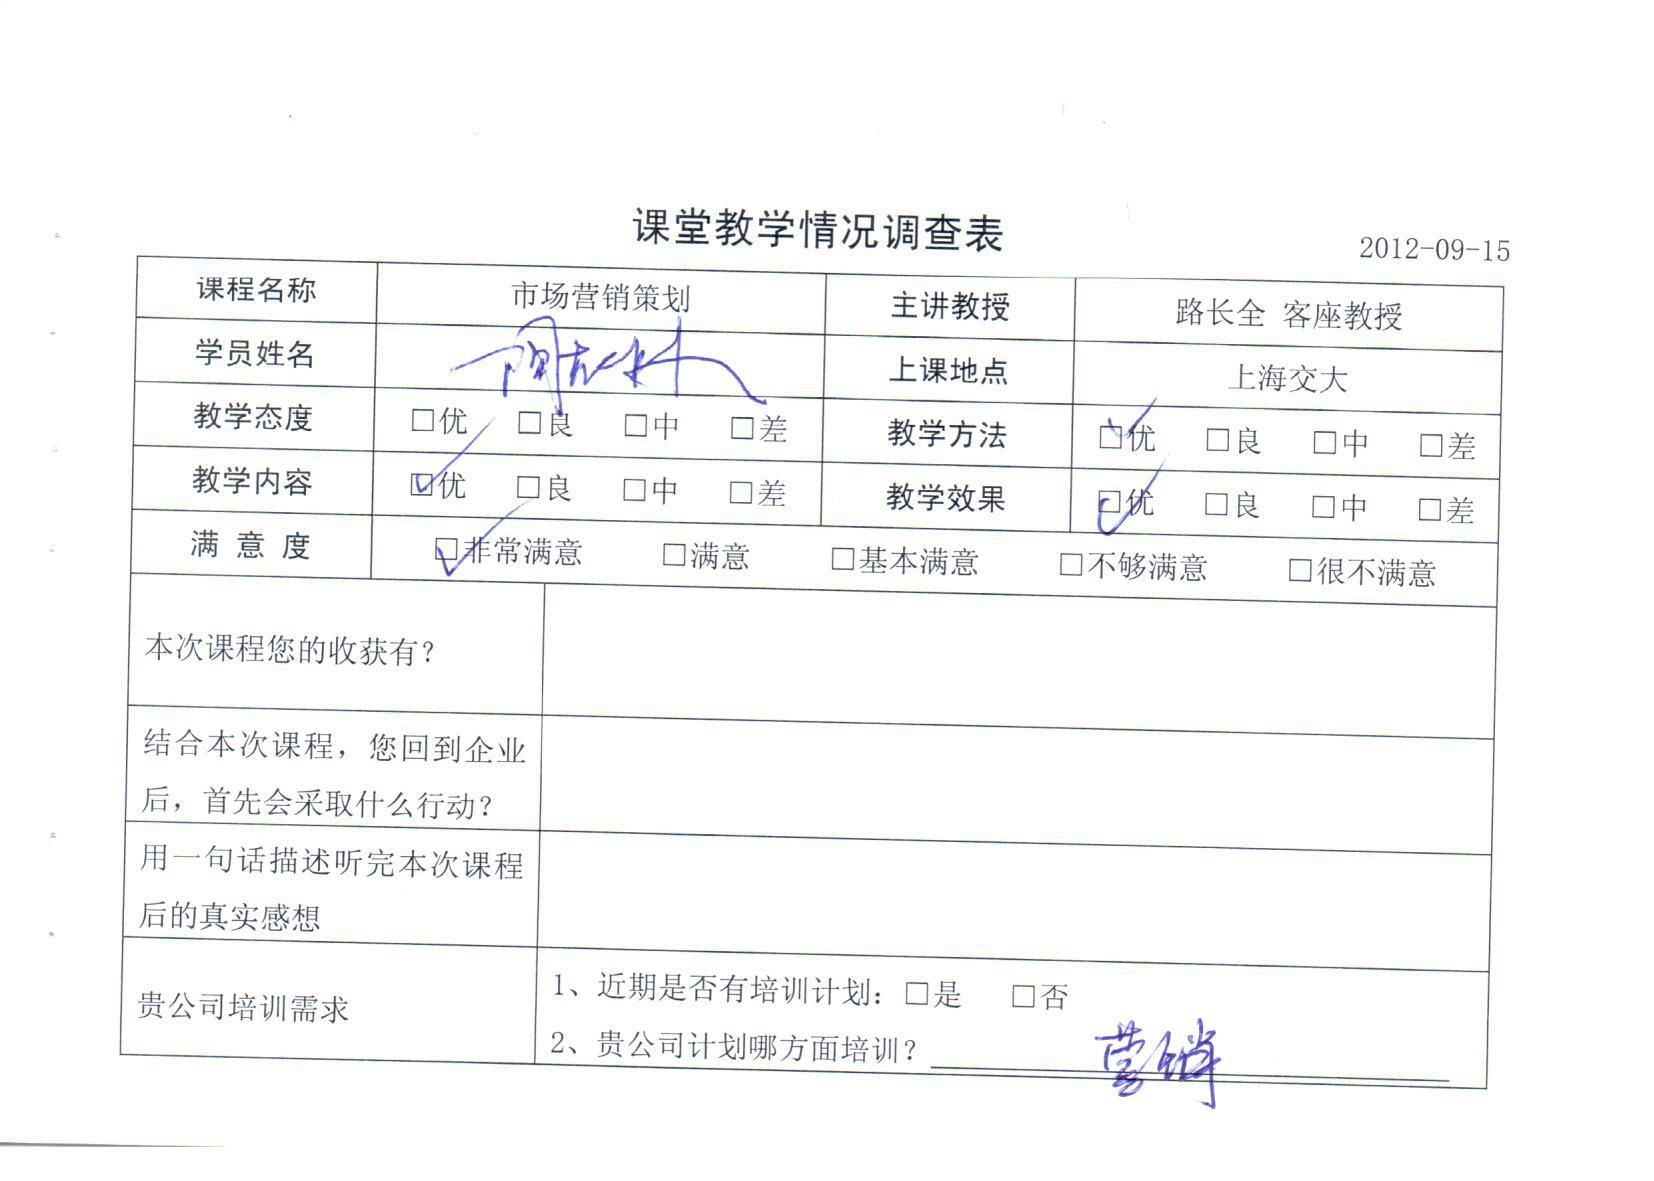 课堂教学情况调查表
2012-09-15
课程名称 市场营销策划 主讲教授 路长全 客座教授
学员姓名 上课地点 上海交大
教学态度 □优 □良 □中 □差 教学方法 ☑优 □良 □中 □差
教学内容 ☑优 □良 □中 □差 教学效果 ☑优 □良 □中 □差
满 意 度 ☑非常满意 □满意 □基本满意 □不够满意 □很不满意
本次课程您的收获有?
结合本次课程，您回到企业
后，首先会采取什么行动?
用一句话描述听完本次课程
后的真实感想
贵公司培训需求
1、近期是否有培训计划: □是 □否
2、贵公司计划哪方面培训? 营销